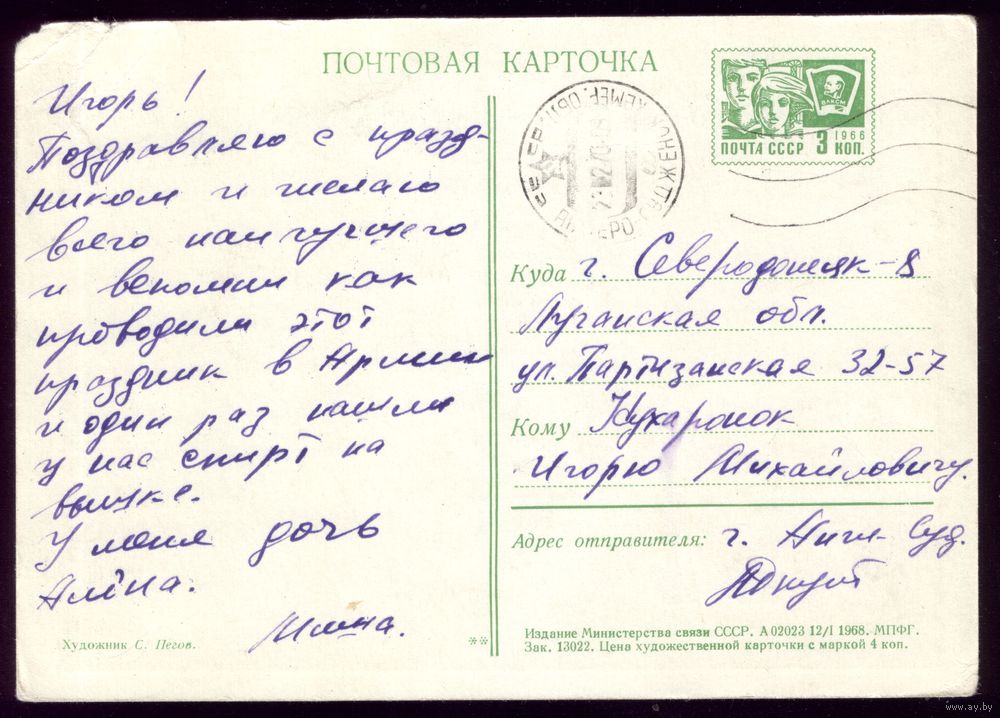 ПОЧТОВАЯ КАРТОЧКА
Игорь!
Поздравляю с празд-
ником и желаю
всего наилучшего
и вспомни как
проводили этот
праздник в Армии
и один раз нашли
у нас спирт на
вышке.
У меня дочь
Алёна.
Художник С. Пегов.
**
ВЛКСМ
1966
ПОЧТА СССР 3 КОП.
СССР КЕМЕР. ОБЛ.
АНЖЕРО СУДЖЕНСК
Куда г. Северодонецк-8
Луганская обл.
ул. Партизанская 32-57
Кому Кухаронок
Игорю Михайловичу.
Адрес отправителя: г. Анж-Суд.
Издание Министерства связи СССР. А 02023 12/I 1968. МПФГ.
Зак. 13022. Цена художественной карточки с маркой 4 коп.
www.ay.by